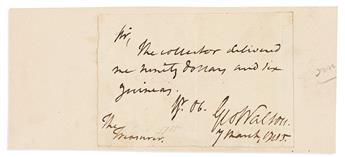 Sir,
The collector delivered
me ninety dollars and six
guineas.
Yr. Ob. Geo Walton.
The
Treasurer. 7 March, 1785.